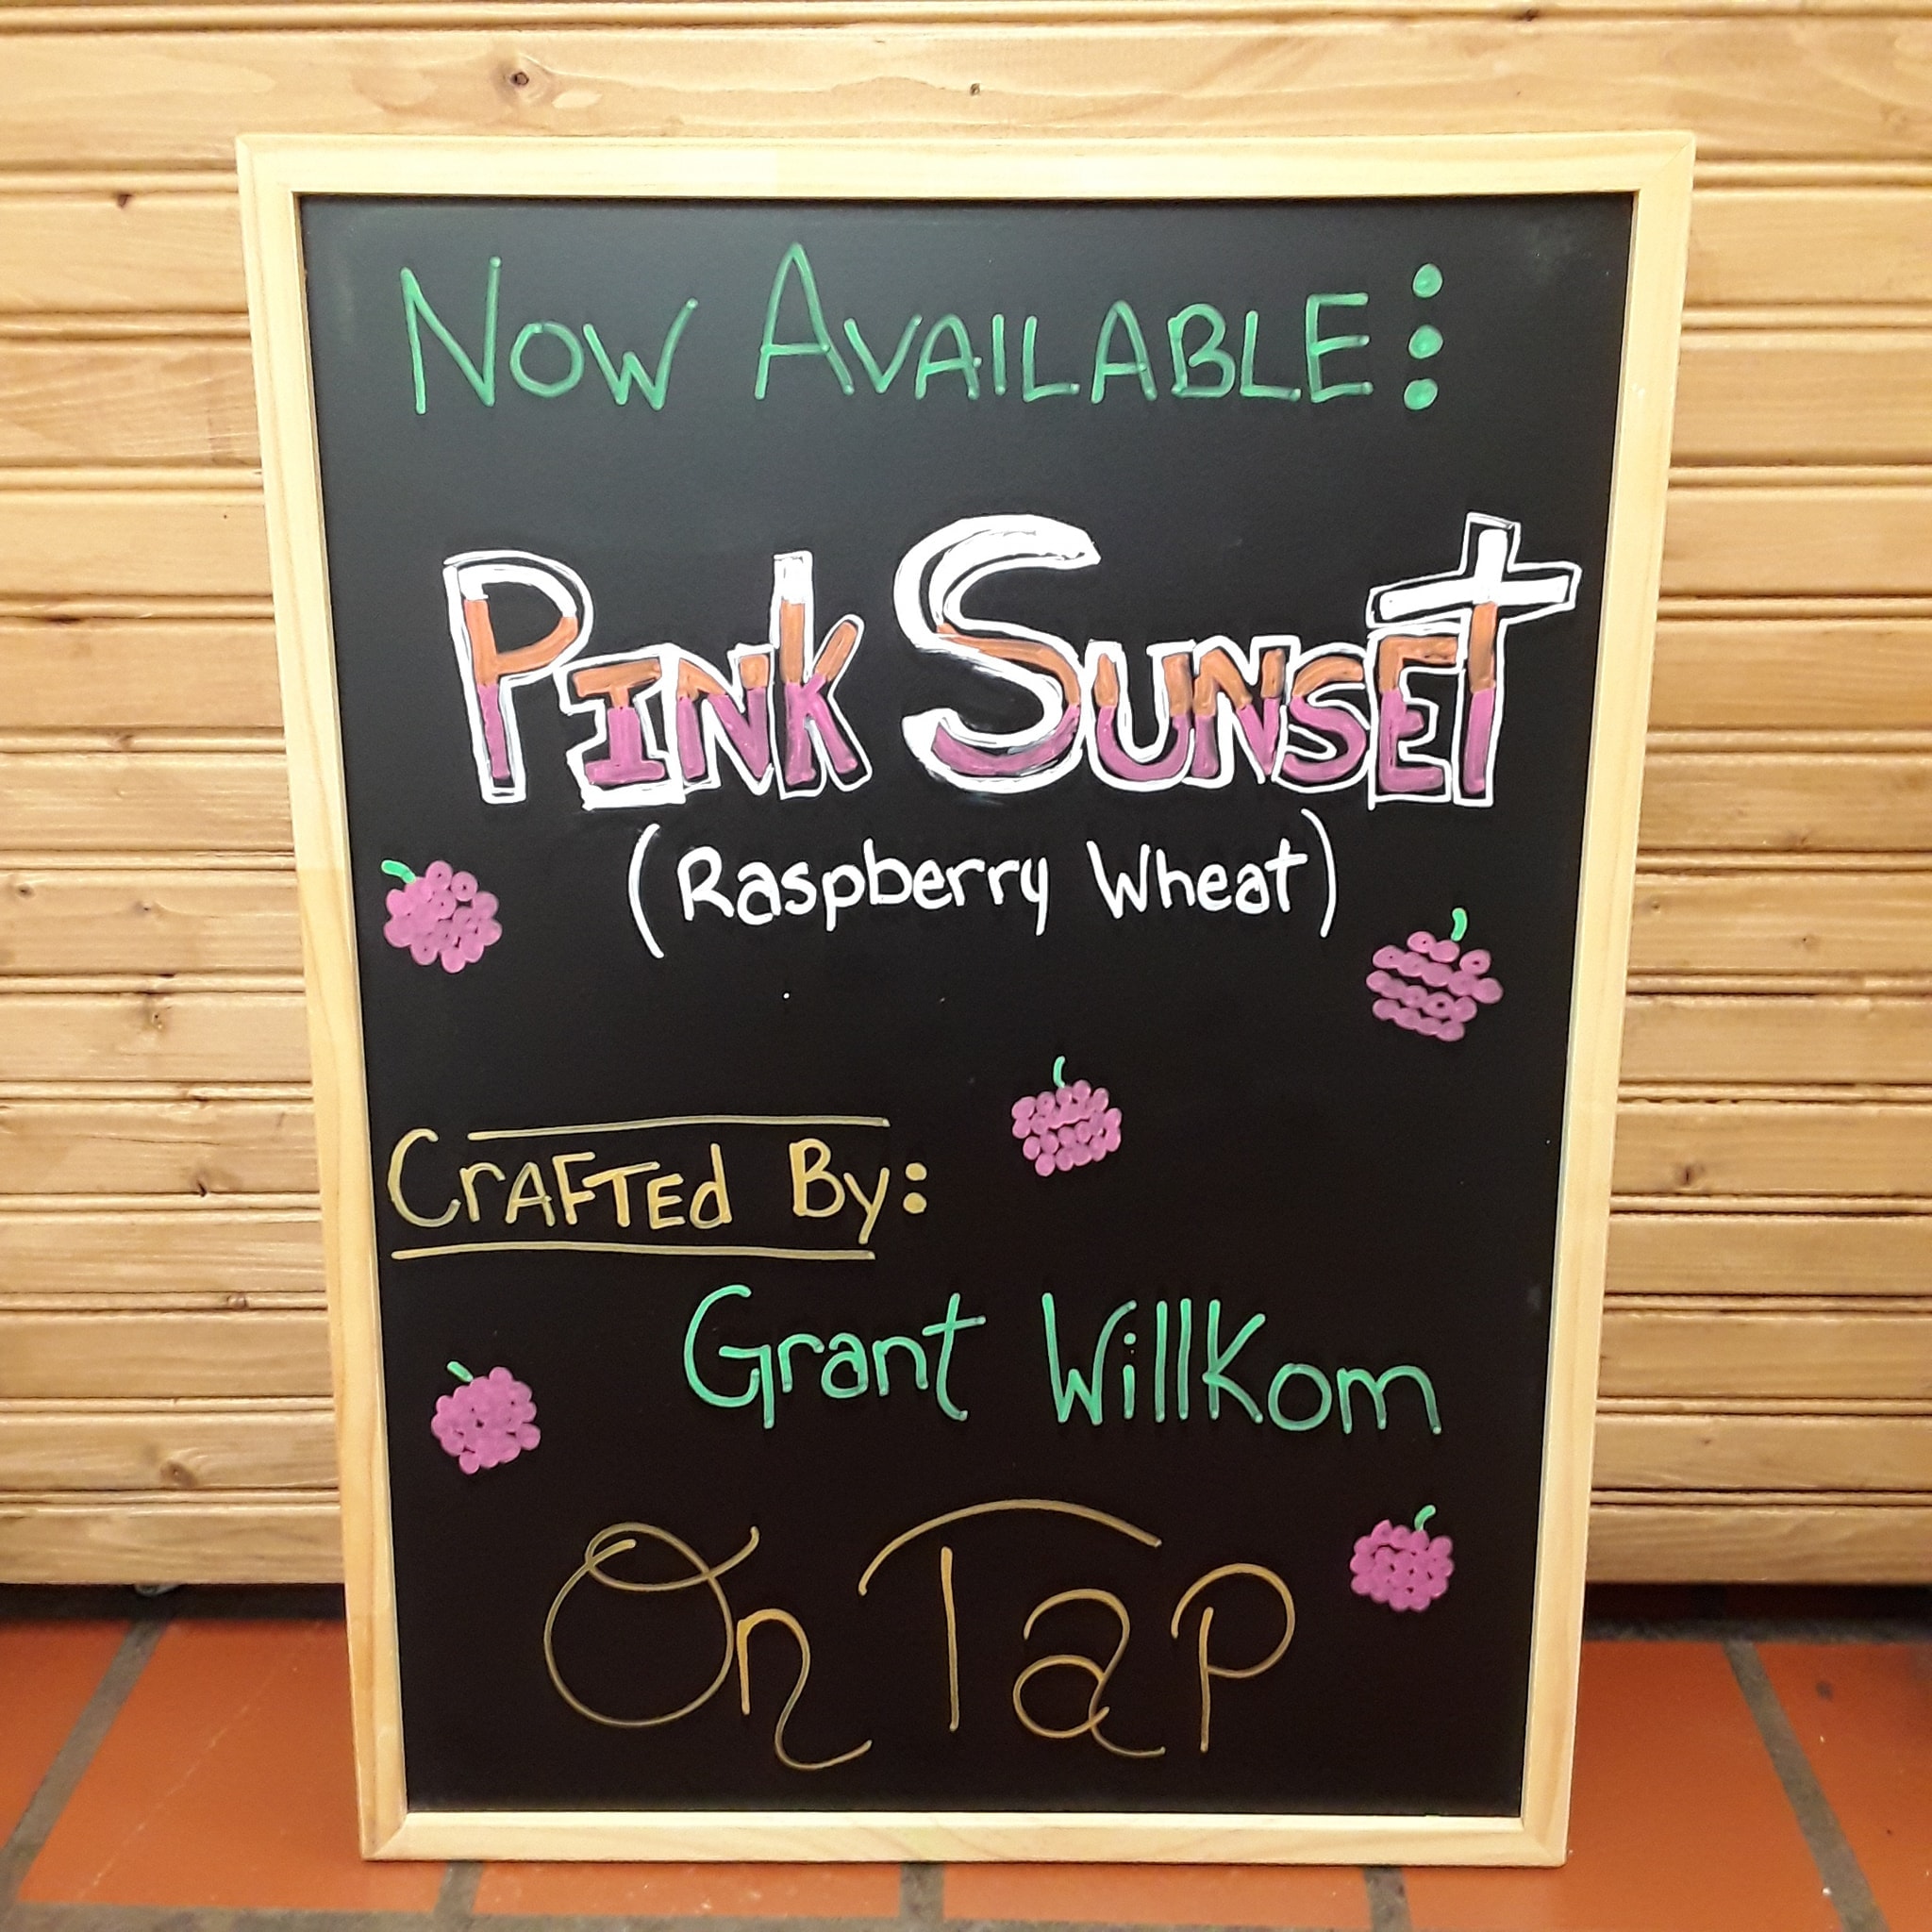 Now Available:
Pink Sunset
(Raspberry Wheat)
Crafted By:
Grant Willkom
On Tap